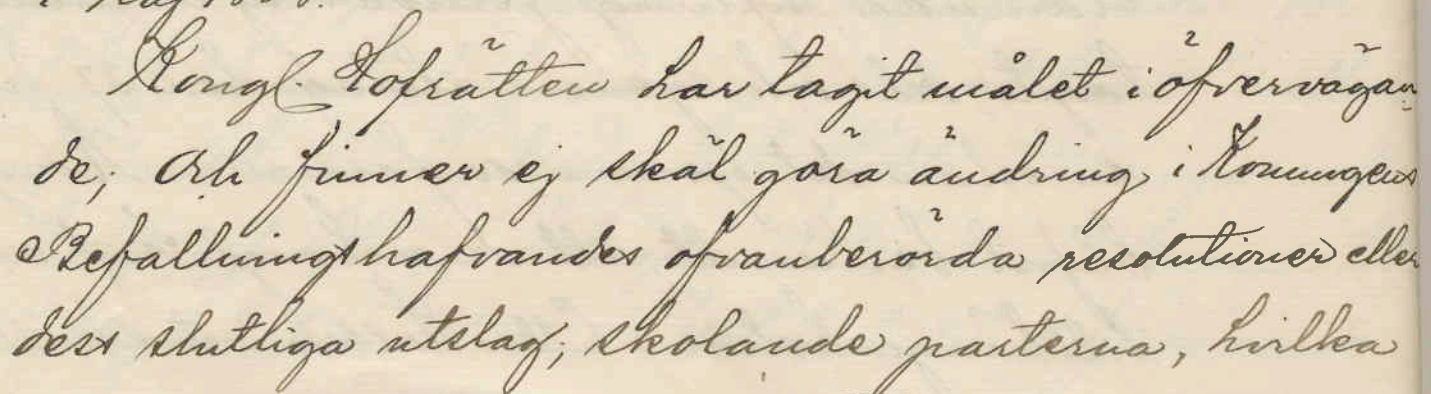 Kongl. Hofrätten har tagit målet i öfvervägan-
de; och finner ej skäl göra ändring i Konungens
Befallningshafvandes ofvanberörda resolutioner eller
dess slutliga utslag; skolande parterna, hvilka